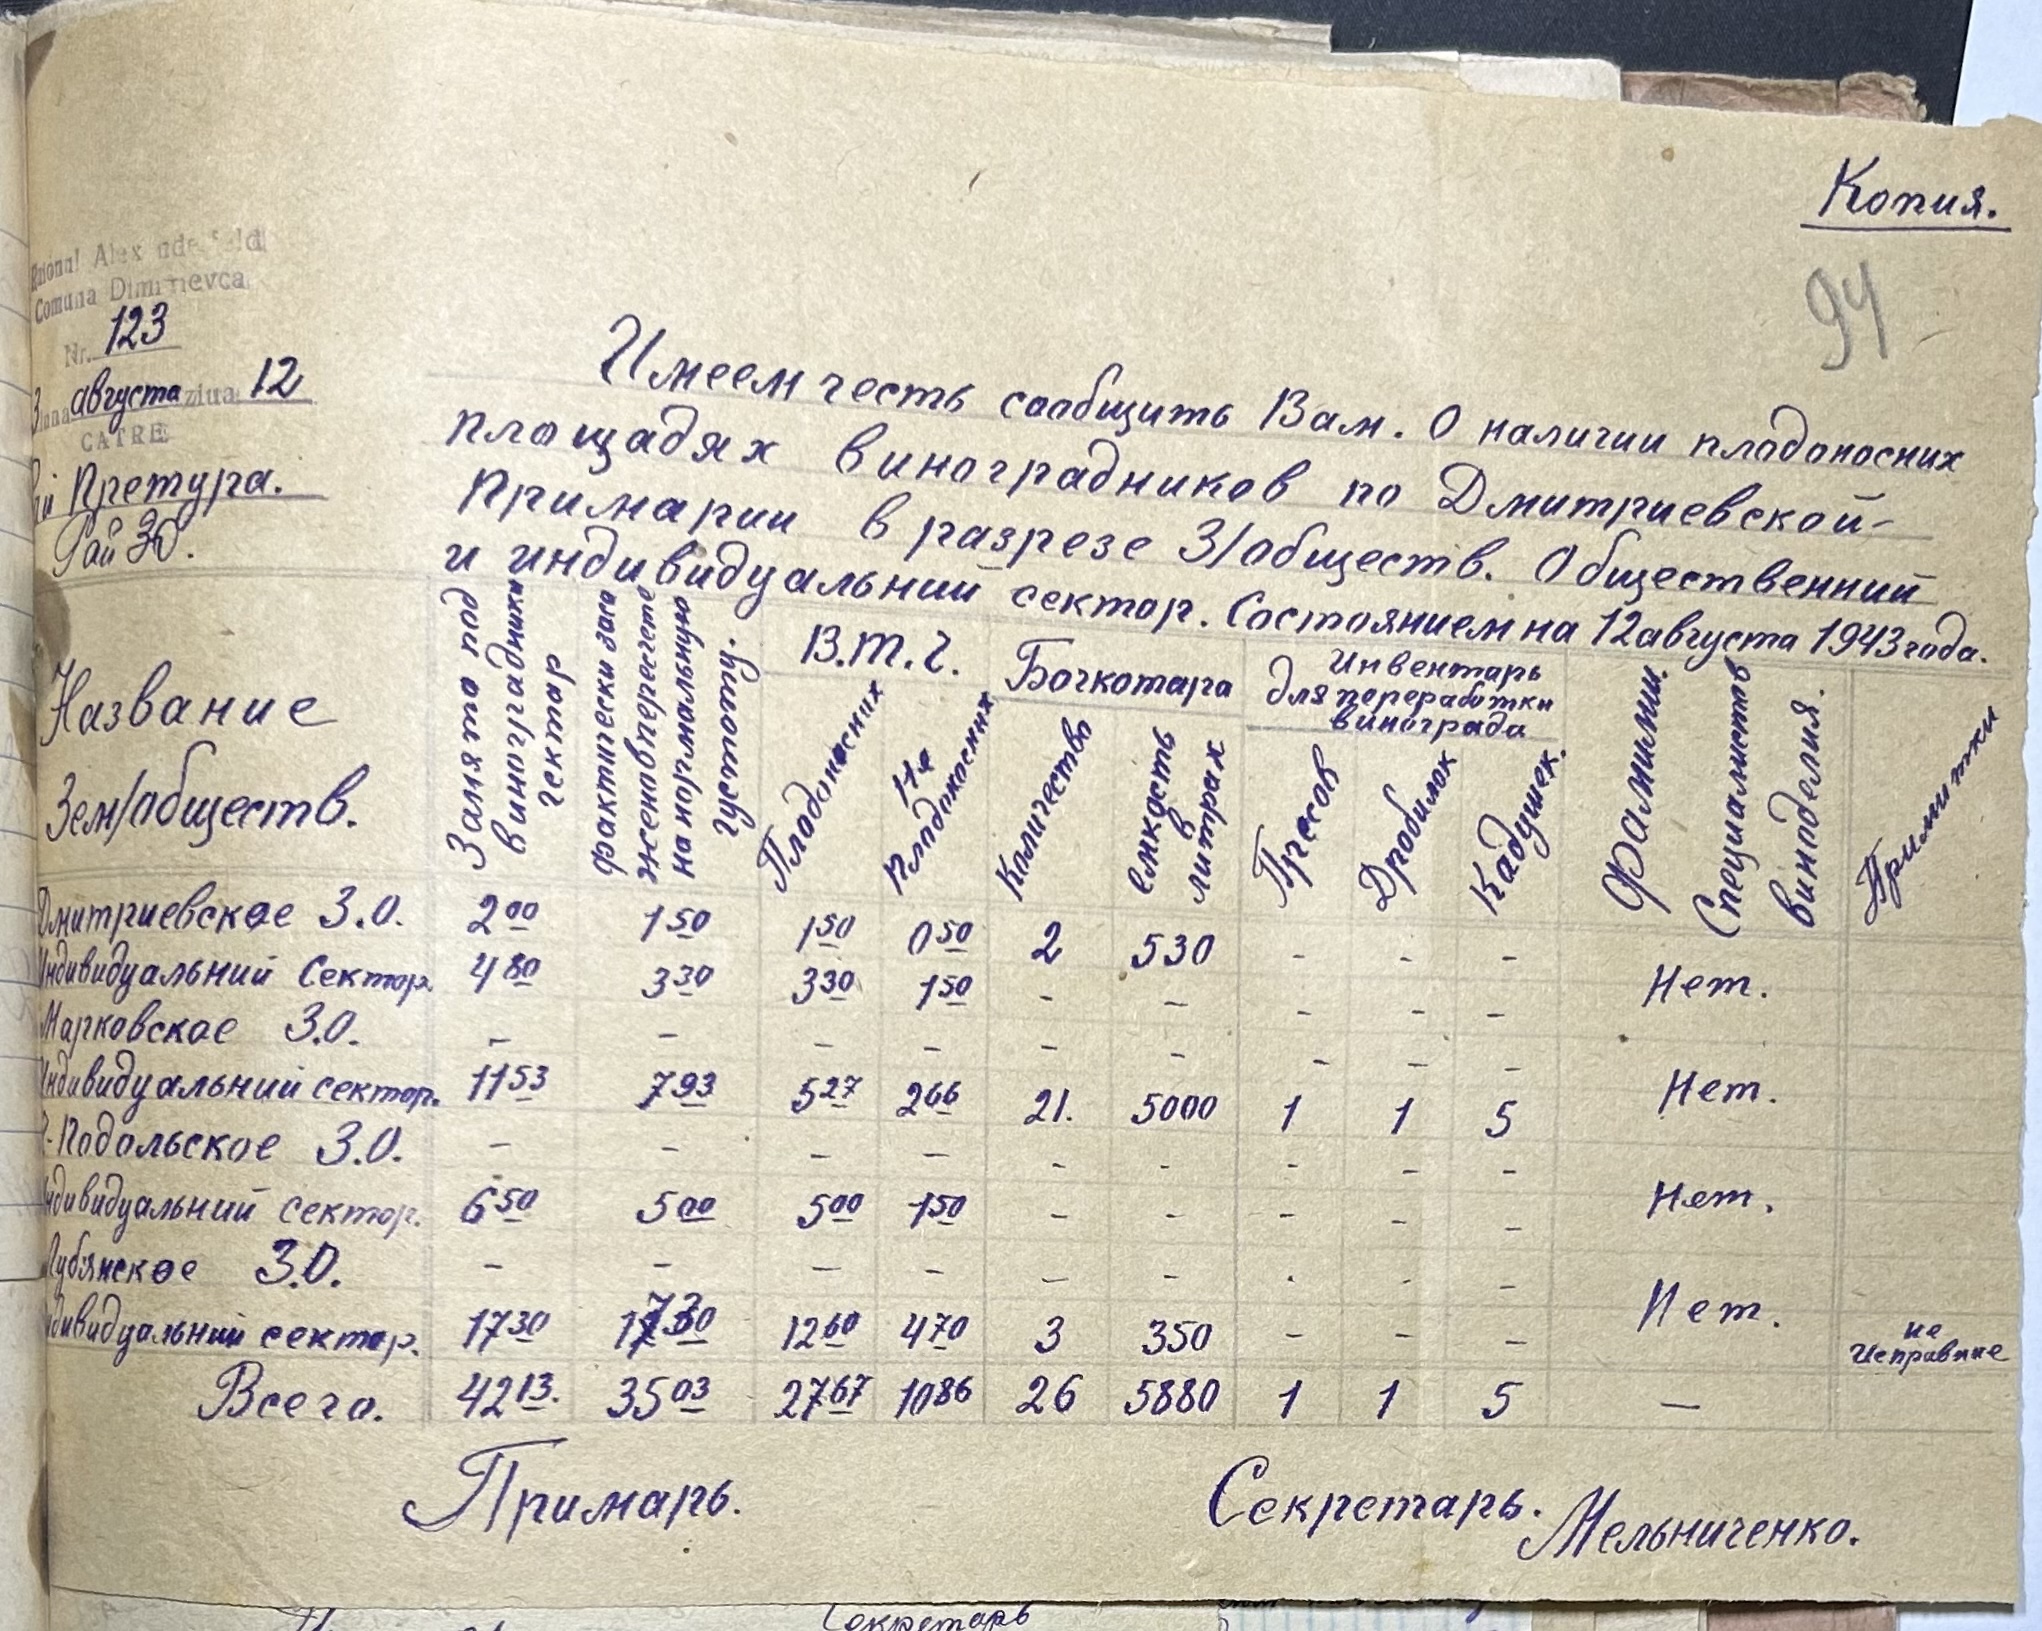 Копия.
94
Comuna Dimitrievca
Nr. 123
августа ziua 12
CATRE
Претура.
Рай З.О.
Имеем честь сообщить Вам. О наличии плодоносних
площадях виноградников по Дмитриевской-
Примарии в разрезе З/обществ. Общественний
и индивидуальний сектор. Состоянием на 12 августа 1943 года.
Название
Зем/обществ.
Занято под
виноградники
гектар
фактически заса
женовпересчете
на нормальную
густоту.
В.т.ч.
Плодоносних
Не
плодоносних
Бочкотара
Количество
емкость
в
литрах
Инвентарь
для переработки
винограда
Пресов
Дробилок
Кадушек.
Фамилии.
Специалистов
виноделия.
Примитки
Дмитриевское З.О. 2 00 1 50 1 50 0 50 2 530 - - -
Индивидуальний Сектор. 4 80 3 30 3 30 1 50 - - - - - Нет.
Марковское З.О. - - - - - - - - -
Индивидуальний сектор. 11 53 7 93 5 27 2 66 21. 5000 1 1 5 Нет.
-Подольское З.О. - - - - - - - - -
Индивидуальний сектор. 6 50 5 00 5 00 1 50 - - - - - Нет.
Лубянское З.О. - - - - - - - - -
Индивидуальний сектор. 17 30 17 30 12 60 4 70 3 350 - - - Нет. не
исправние
Всего. 42 13. 35 03 27 67 10 86 26 5880 1 1 5 —
Примарь. Секретарь. Мельниченко.
Секретарь